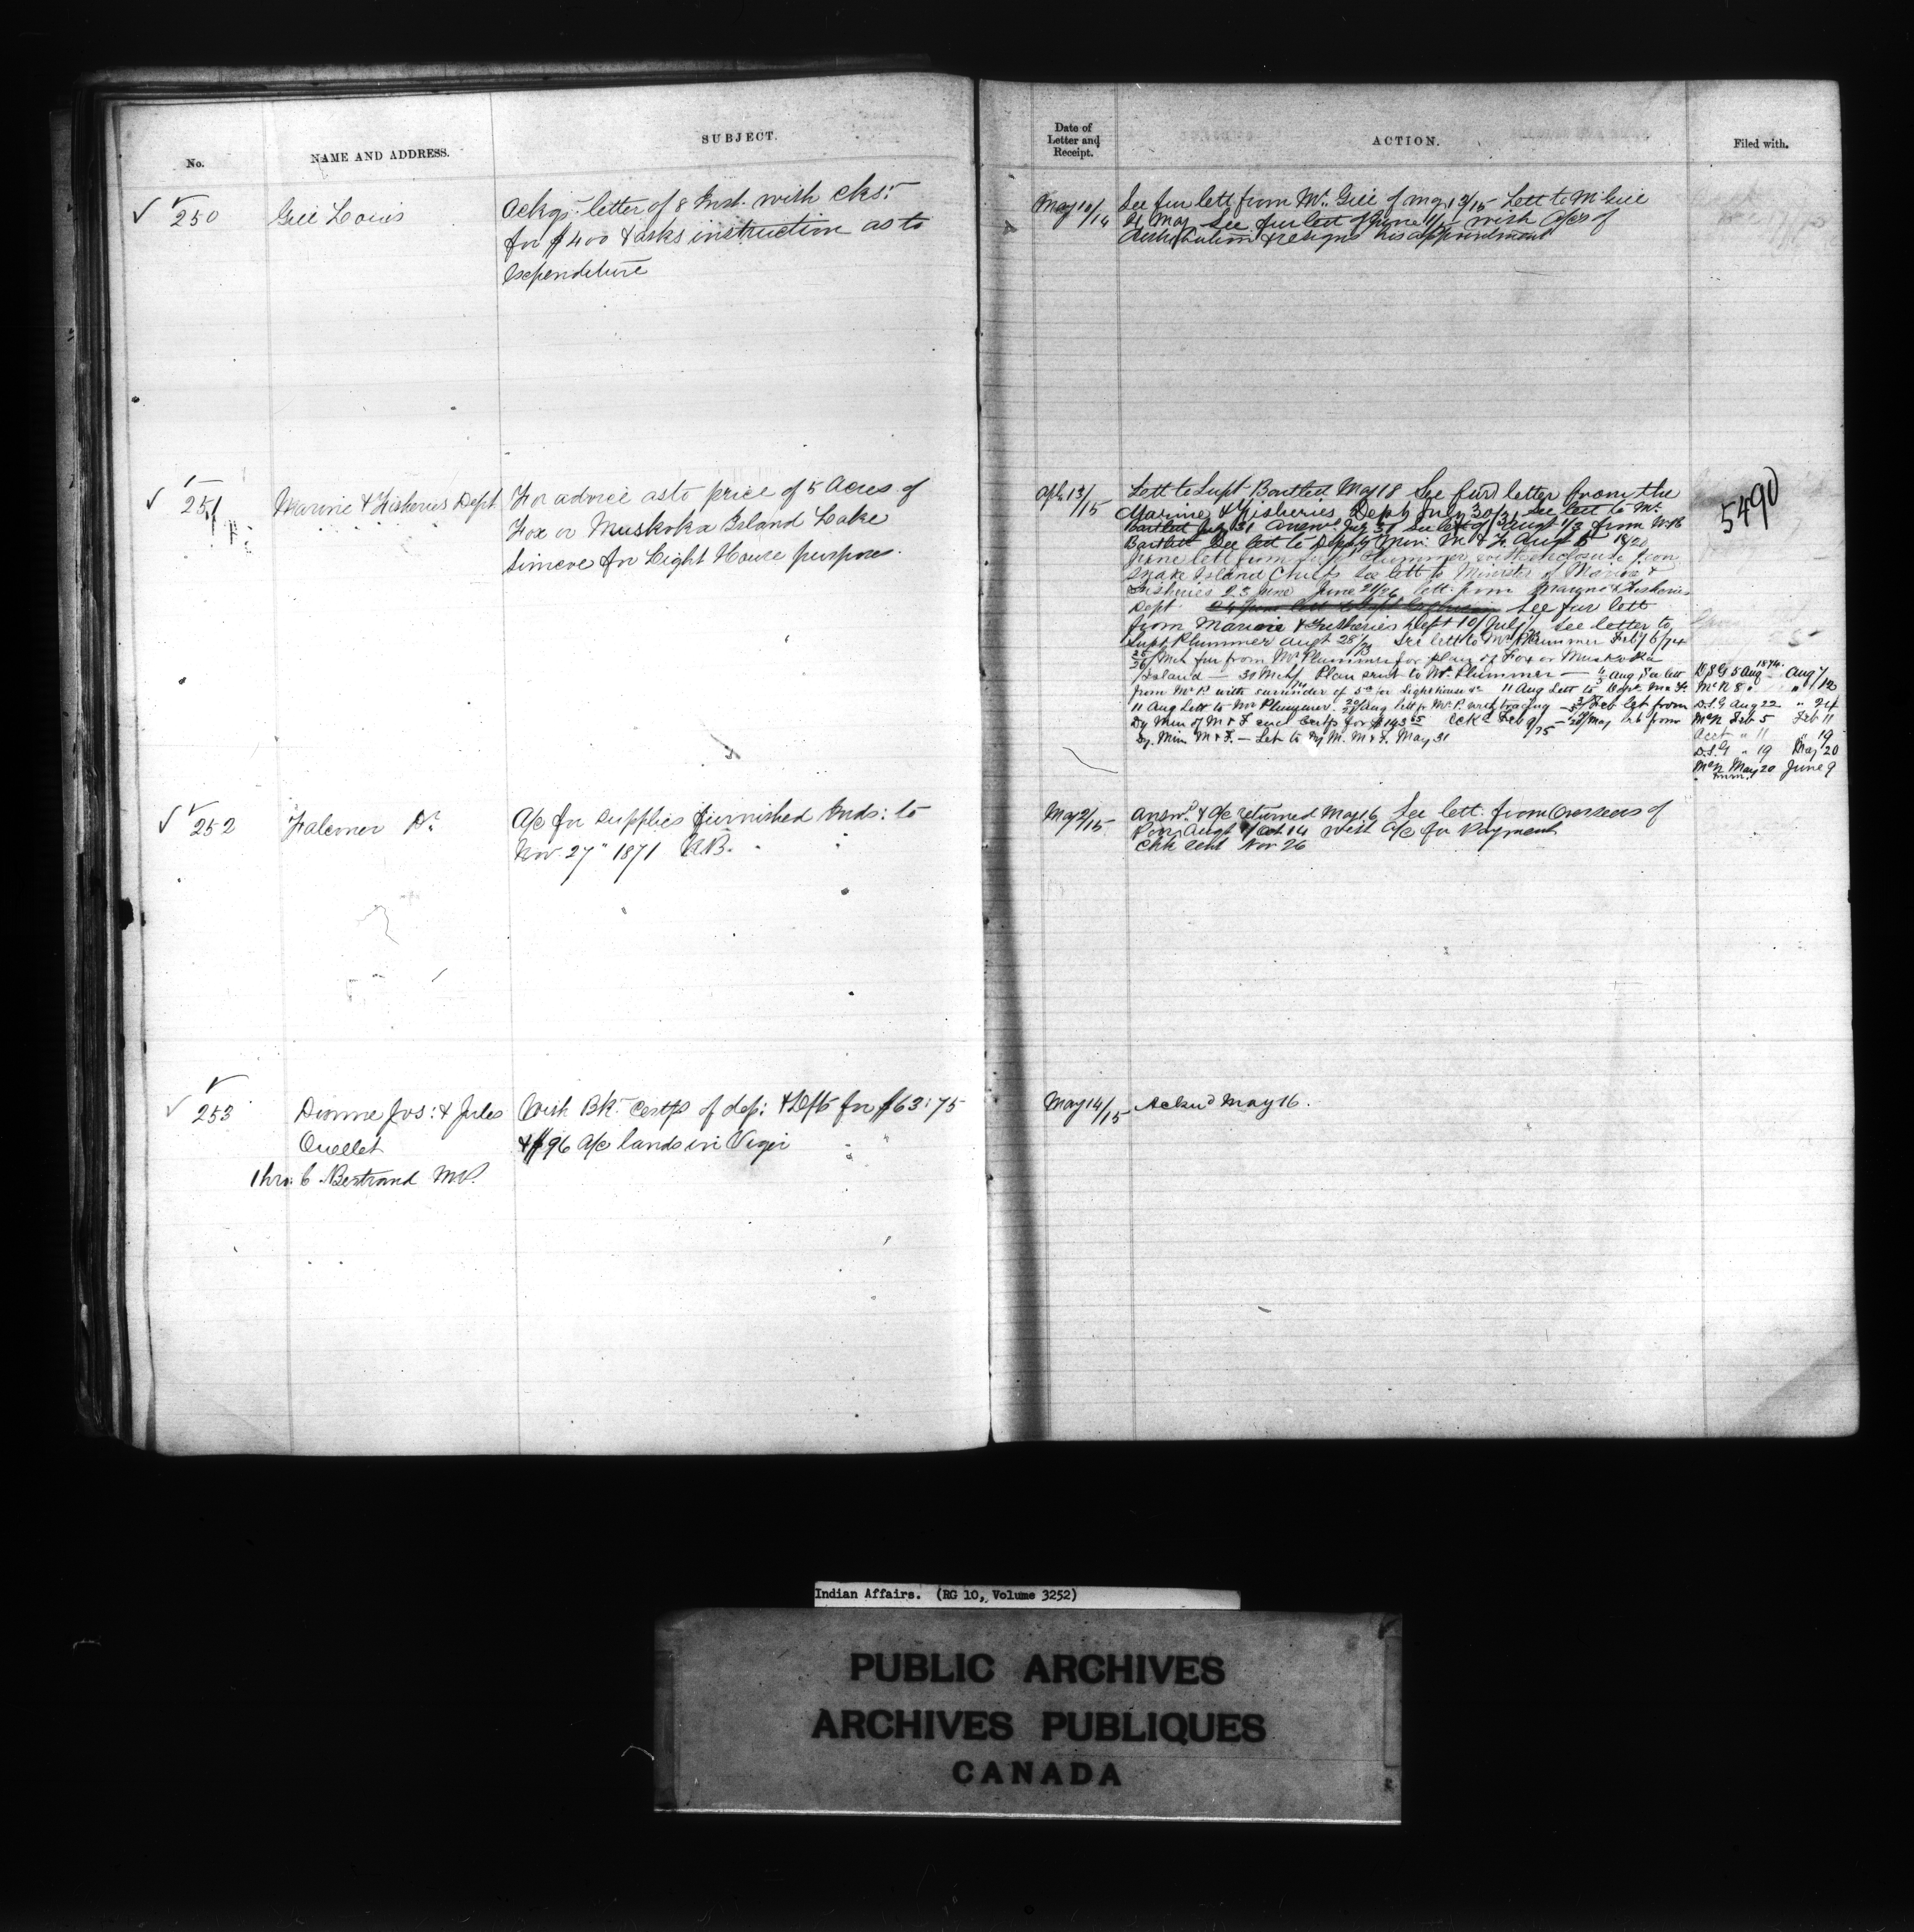 No.
NAME AND ADDRESS.
SUBJECT.
Date of
Letter and
Receipt.
ACTION.
Filed with.
250
Gill Louis
Ackgs: letter of 8 Inst. with cks:
for $400 & asks instruction as to
Expenditure
May 10/14
See fur lett from Mr. Gill of May 13/15 Lett to Mr Gill
21 May See fur lett of June 11/ with a/cs of
distribution & resigns his appointment
251
Marine & Fisheries Dept
For advice as to price of 5 Acres of
Fox or Muskoka Island Lake
Simcoe for Light House purposes.
Apl 13/15
Lett to Supt Bartlett May 18 See furd letter from the
Marine & Fisheries Dept July 30/31 See lett to Mr.
Bartlett July 31 Answd. July 31 See lett of Augt 1/3 from W.B
Bartlett See lett to Deputy Min: M & F. Aug 5 18/20
June lett from Supt Plummer with enclosure from
Snake Island Chiefs See lett to Minister of Marine &
Fisheries 25 June June 24/26 lett: from Marine & Fisheries
Dept See fur lett
from Marine & Fisheries Dept 10/ July/ See letter to
Supt Plummer Augt 28/73 See lett to Mr Plummer Feby 6/74
25/26/ Mch fur from Mr. Plummer for plan of Fox or Muskoka
Island — 31 Mch/ Plan sent to Mr. Plummer — Aug See lett
from Mr P. with surrender of 5 ac for Lighthouse &c 11 Aug Lett to Dept. Ma. F.
11 Aug Lett to Mr Plummer. Aug lett fr Mr. P. with tracing — Feb let from
Dy Min of M & F encl Certf for $143 65 Ackd Feb 9/75 — May let from
Dy. Min M & F. — Let to Dy M. M & F. May 31
5490
1874.
D.S.G 5 Aug Aug 7
McN 8 " " 12
D.S.G Aug 22 " 24
McN Feb 5 Feb 11
Acct " 11 " 19
D.S.G " 19 May 20
McN May 20 June 9
252
Falconer Dr.
A/c for supplies furnished Inds: to
Nov 27" 1871 N.B.
May 2/15
Answd. & A/c returned May 16 See lett. from Overseers of
Poor, Augt / Oct 14 with A/c for Payment
Chk sent Nov 26
253
Dionne Jos: & Jules
Ouellet
Thro: C. Bertrand M.P.
With Bk: Certfs of dep: & Dfts for $63:75
& $96 A/c lands in Viger
May 14/15
Acknd May 16.
Indian Affairs. (RG 10, Volume 3252)
PUBLIC ARCHIVES
ARCHIVES PUBLIQUES
CANADA